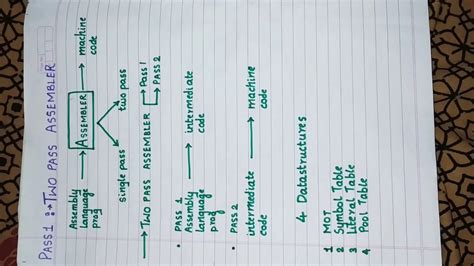 PASS 1 :→ TWO PASS ASSEMBLER
Assembly language prog → ASSEMBLER → machine code
single pass two pass
→ TWO PASS ASSEMBLER → Pass 1
→ PASS 2
• PASS 1
Assembly language prog → intermediate code
• PASS 2
intermediate code → machine code
4 Datastructures
1 MOT
2 Symbol Table
3 Literal Table
4 Pool Table